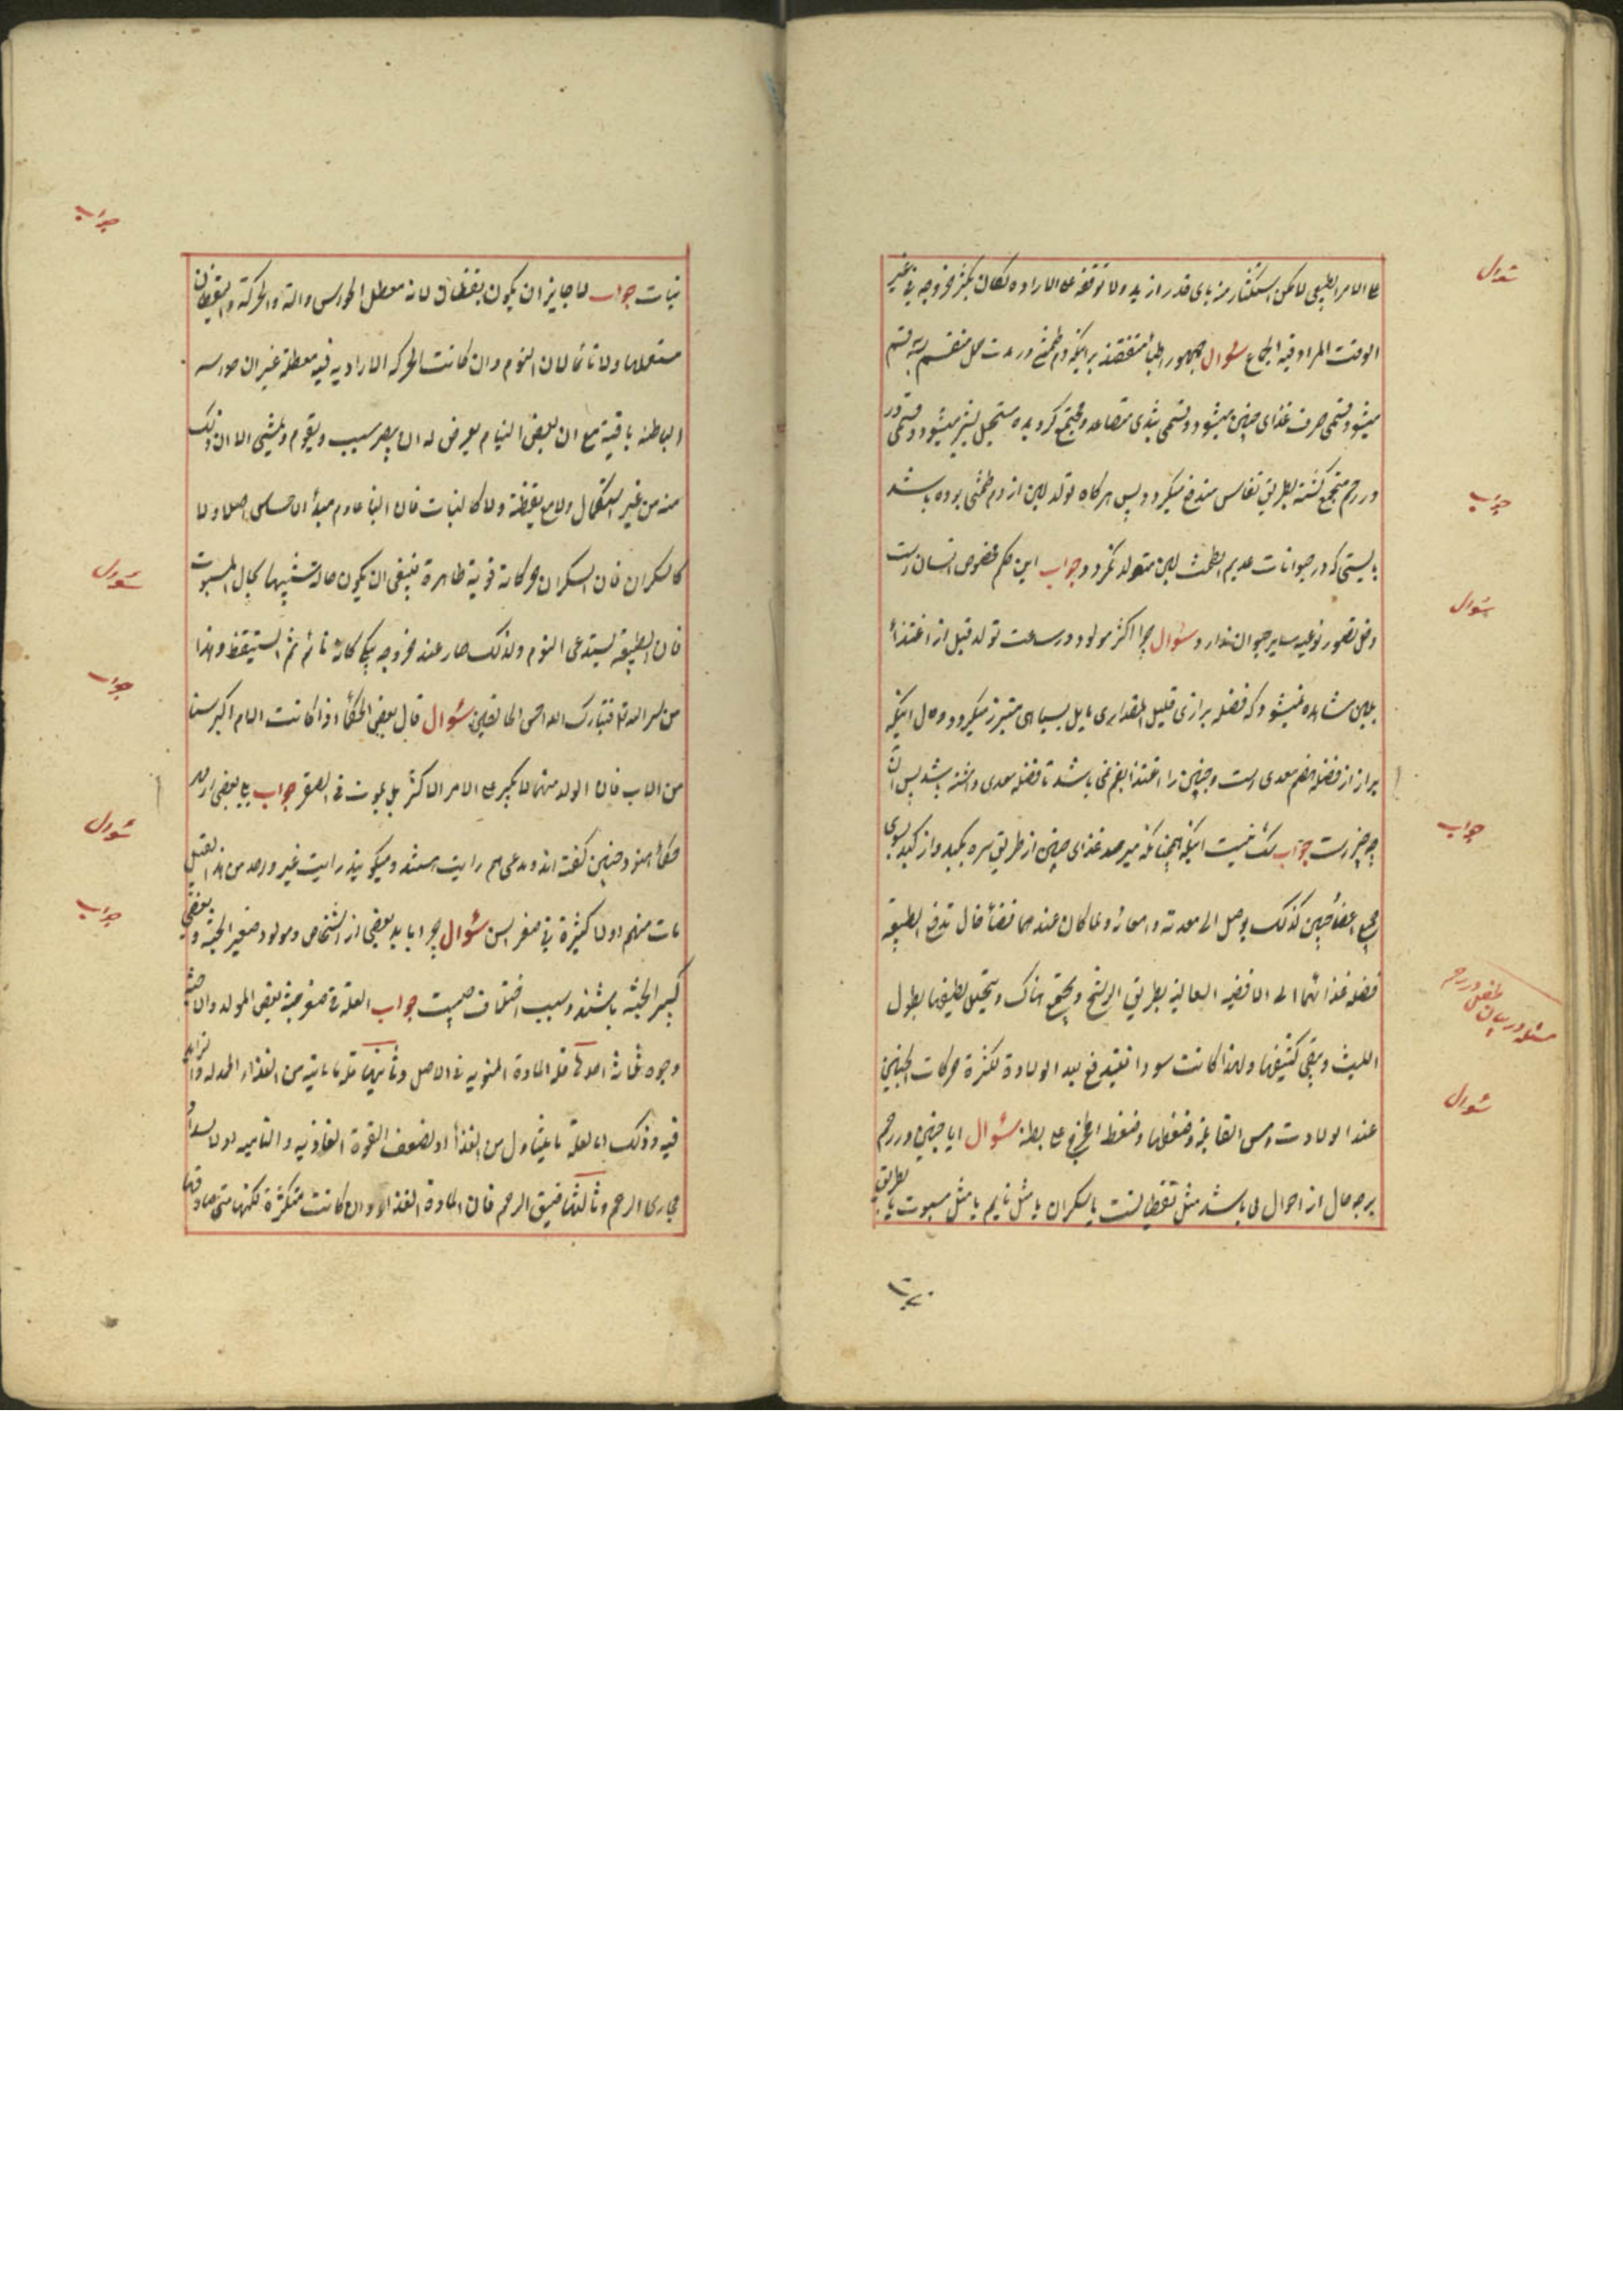 سؤال
علی الامر الطبیعی لامکن استکثار منه بای قدر ازید ولا توقفه علی الاراده لکان یکثر خروجه فی غیر
الوقت المراد فیه الجماع سؤال جمهور اطبا متفقند بر اینکه دم طمثی در مدت حمل منقسم بسه قسم
میشود قسمی صرف غذای جنین میشود و قسمی بثدی متصاعد و مجتمع گردیده مستحیل بشیر میشود و قسمی
در رحم مجتمع گشته بطریق نفاس مندفع میگردد پس هرگاه تولد لبن از دم طمثی بوده باشد
جواب
بایستی که در حیوانات عدیم الطمث لبن متولد نگردد جواب این حکم مخصوص انسان است
سؤال
سایر حیوان ندارد سؤال چرا اکثر مولود در ساعت تولد قبل از اغتذا
بلبن مشاهده میشود که فضله برازی قلیل المقداری مایل بسیاهی متبرز میگردد و حال اینکه
براز از فضله هضم معدی است و جنین را اغتذا بفم نمی باشد تا فضله معدی داشته باشد پس آن
جواب
چه چیز است جواب شک نیست اینکه همچنانکه میرسد غذای جنین از طریق سره بکبد و از کبد بسوی
جمیع اعضا جنین کذلک یوصل الی معدته و امعائه و ما کان عندهما فضا قال تدفع الطبیعة
فضله غذائهما الی الافضیه الخالیة بطریق الرشح و یجتمع هناک و یتحلل لطیفها بطول
مسئله در بیان طفل در رحم
اللبث و یبقی کثیفها ولهذا کانت سودا فیندفع بعد الولادة لکثرة حرکات الجنین
سؤال
عند الولادت و مس القابلة و ضغطها و ضغط المخرج علی بطنه سؤال ایا جنین در رحم
بر چه حال از احوال می باشد مثل یقظان است یا سکران یا مثل نایم یا مثل مسبوت یا بطریق
جواب
نبات جواب لا جایز ان یکون یقظان لانه معطل الحواس والة والحرکة والیقظان
مستعملها ولا نائما لان النوم وان کانت الحرکه الارادیه فیه معطلة غیر ان حواسه
الباطنه باقیة مع ان بعض النیام یعرض له ان یبصر و یقوم و یمشی الا ان ذلک
منه من غیر استکمال ولا مع یقظة ولا کالنبات فان النبا عادم مبدأ الاحساس اصلا ولا
سؤال
کالسکران فان السکران حرکاته قویة ظاهرة فینبغی ان یکون حاله شبیها بحال المسبوت
فان الطبیعة یستدعی النوم ولذلک صار عند خروجه یبکی کانه نائم ثم استیقظ وهذا
جواب
من سر الله تعالی فتبارک الله احسن الخالقین سؤال قال بعض الحکما اذا کانت الام اکبر سنا
من الاب فان الولد منهما لا یکبر علی الامر الاکثر بل یموت فی الصغر جواب بلی بعضی از
سؤال
حکما هنود چنین گفته اند و مدعی هم رایت هستند و میگویند رایت غیر واحد من هذا القبیل
جواب
مات منهم اولاد کثیرة فی صغر السن سؤال چرا باید بعضی از اشخاص و مولود صغیر الجثه و بعضی
کبیر الجثه باشند و سبب اختلاف چیست جواب العلة فی صغر جثة بعض المولد والا جثة
وجوه ثلاثه احدها قلة المادة المنویه فی الاصل و ثانیها قلة ما یاتیه من الغذاء
فیه و ذلک اما لقلة ما یتناول من الغذأ او لضعف القوة الغاذیه و النامیه او لانسداد
مجاری الرحم و ثالثها ضیق الرحم فان المادة الغذائیه وان کانت متکثرة لکنها متی صادفها